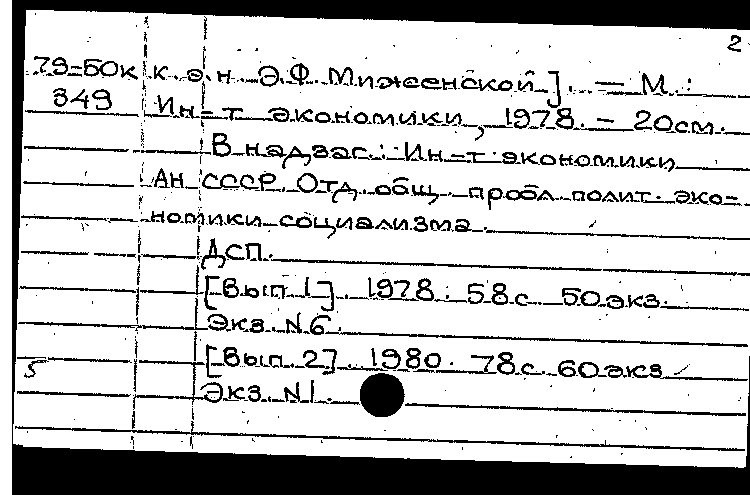 2
79-50к к.э.н. Э.Ф. Миженской]. — М.:
349 Ин-т экономики, 1978. - 20см.
В надзаг.: Ин-т экономики
АН СССР. Отд. общ. пробл. полит. эко-
номики социализма.
ДСП.
[Вып. 1]. 1978. 58с. 50экз.
Экз. N6.
[Вып. 2]. 1980. 78с. 60экз
5
Экз. N1.